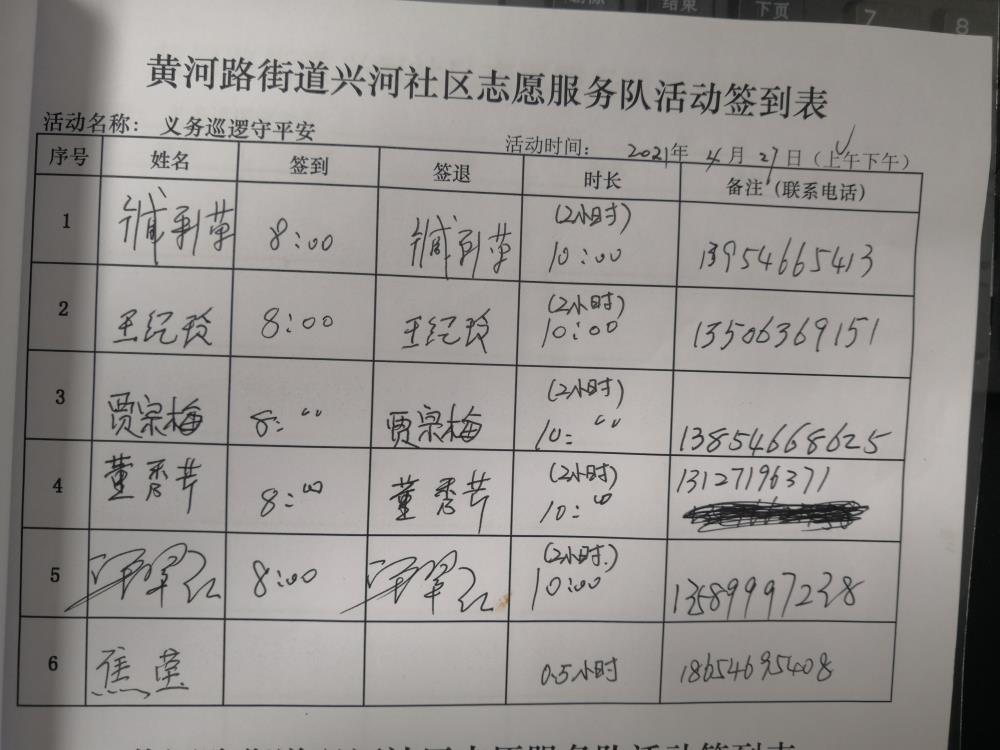 结束
下页
7
8
黄河路街道兴河社区志愿服务队活动签到表
活动名称： 义务巡逻守平安
活动时间： 2021年 4月 27日（上午下午）
序号 姓名 签到 签退 时长 备注（联系电话）
1 臧利革 8:00 臧利革 (2小时) 10:00 13954665413
2 王纪玲 8:00 王纪玲 (2小时) 10:00 13506369151
3 贾宗梅 8:00 贾宗梅 (2小时) 10:00 13854668625
4 董秀芹 8:00 董秀芹 (2小时) 10:00 13127196371
5 翠红 8:00 翠红 (2小时) 10:00 13589997238
6 焦莹 0.5小时 18654695408